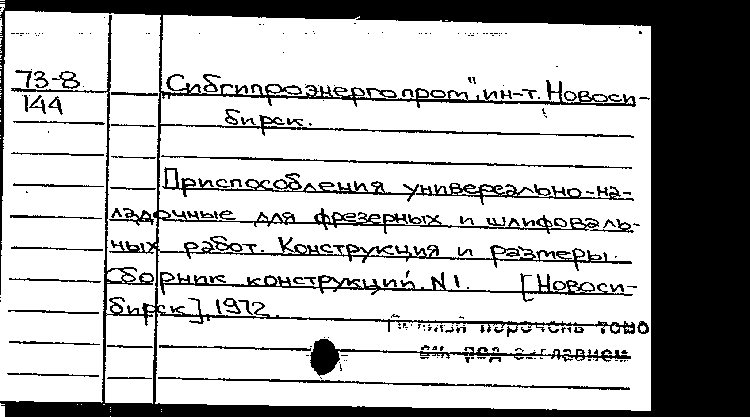 73-8
144
"Сибгипроэнергопром", ин-т. Новоси-
бирск.
Приспособления универсально-на-
ладочные для фрезерных и шлифоваль-
ных работ. Конструкция и размеры.
Сборник конструкций. N1. [Новоси-
бирск], 1972.
перечень томо
см. под заглавием